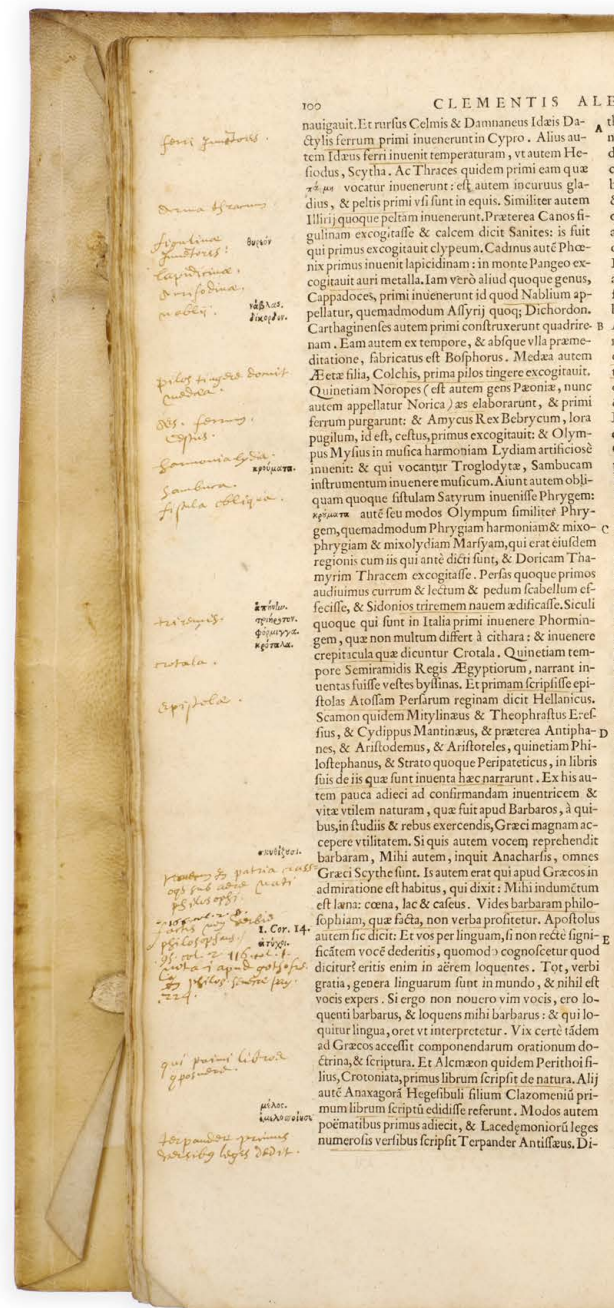 100 CLEMENTIS ALE
nauigauit. Et rursus Celmis & Damnaneus Idæis Da-
ctylis ferrum primi inuenerunt in Cypro. Alius au-
tem Idæus ferri inuenit temperaturam, vt autem He-
siodus, Scytha. Ac Thraces quidem primi eam quæ
vocatur inuenerunt: est autem incuruus gla-
dius, & peltis primi vsi sunt in equis. Similiter autem
Illirij quoque peltam inuenerunt. Præterea Canos fi-
gulinam excogitasse & calcem dicit Sanites: is fuit
qui primus excogitauit clypeum. Cadmus autē Phœ-
nix primus inuenit lapicidinam: in monte Pangeo ex-
cogitauit auri metalla. Iam verò aliud quoque genus,
Cappadoces, primi inuenerunt id quod Nablium ap-
pellatur, quemadmodum Assyrij quoq; Dichordon.
Carthaginenses autem primi construxerunt quadrire-
nam. Eam autem ex tempore, & absque vlla præme-
ditatione, fabricatus est Bosphorus. Medæa autem
Æetæ filia, Colchis, prima pilos tingere excogitauit.
Quinetiam Noropes (est autem gens Pæoniæ, nunc
autem appellatur Norica) æs elaborarunt, & primi
ferrum purgarunt: & Amycus Rex Bebrycum, lora
pugilum, id est, cestus, primus excogitauit: & Olym-
pus Mysius in musica harmoniam Lydiam artificiosè
inuenit: & qui vocantur Troglodytæ, Sambucam
instrumentum inuenere musicum. Aiunt autem obli-
quam quoque fistulam Satyrum inuenisse Phrygem:
κρύματα autē seu modos Olympum similiter Phry-
gem, quemadmodum Phrygiam harmoniam & mixo-
phrygiam & mixolydiam Marsyam, qui erat eiusdem
regionis cum iis qui antè dicti sunt, & Doricam Tha-
myrim Thracem excogitasse. Persas quoque primos
audiuimus currum & lectum & pedum scabellum ef-
fecisse, & Sidonios triremem nauem ædificasse. Siculi
quoque qui sunt in Italia primi inuenere Phormin-
gem, quæ non multum differt à cithara: & inuenere
crepitacula quæ dicuntur Crotala. Quinetiam tem-
pore Semiramidis Regis Ægyptiorum, narrant in-
uentas fuisse vestes byssinas. Et primam scripsisse epi-
stolas Atossam Persarum reginam dicit Hellanicus.
Scamon quidem Mitylinæus & Theophrastus Eres-
sius, & Cydippus Mantinæus, & præterea Antipha-
nes, & Aristodemus, & Aristoteles, quinetiam Phi-
lostephanus, & Strato quoque Peripateticus, in libris
suis de iis quæ sunt inuenta hæc narrarunt. Ex his au-
tem pauca adieci ad confirmandam inuentricem &
vitæ vtilem naturam, quæ fuit apud Barbaros, à qui-
bus, in studiis & rebus exercendis, Græci magnam ac-
cepere vtilitatem. Si quis autem vocem reprehendit
barbaram, Mihi autem, inquit Anacharsis, omnes
Græci Scythe sunt. Is autem erat qui apud Græcos in
admiratione est habitus, qui dixit: Mihi indumētum
est læna: cœna, lac & caseus. Vides barbaram philo-
sophiam, quæ facta, non verba profitetur. Apostolus
autem sic dicit: Et vos per linguam, si non rectè signi-
ficātem vocē dederitis, quomodo cognoscetur quod
dicitur? eritis enim in aërem loquentes. Tot, verbi
gratia, genera linguarum sunt in mundo, & nihil est
vocis expers. Si ergo non nouero vim vocis, ero lo-
quenti barbarus, & loquens mihi barbarus: & qui lo-
quitur lingua, oret vt interpretetur. Vix certè tādem
ad Græcos accessit componendarum orationum do-
ctrina, & scriptura. Et Alcmæon quidem Perithoi fi-
lius, Crotoniata, primus librum scripsit de natura. Alij
autē Anaxagorā Hegesibuli filium Clazomeniū pri-
mum librum scriptū edidisse referunt. Modos autem
poëmatibus primus adiecit, & Lacedęmoniorū leges
numerosis versibus scripsit Terpander Antissæus. Di-
A
B
C
D
E
ferri inuētores.
figulinæ
inuētores:
lapidicinæ.
θυρεόν
νάβλας.
δίχορδον.
pilos tingere docuit
medea.
æs. ferrum.
cestus.
harmonia lydia.
κρούματα.
sambuca.
fistula obliqua.
triremis.
τριήρης
φόρμιγγα.
κρόταλα.
crotala.
Epistolæ.
1. Cor. 14.
qui primi libros
μέλος.
terpander primus
versibus leges dedit.